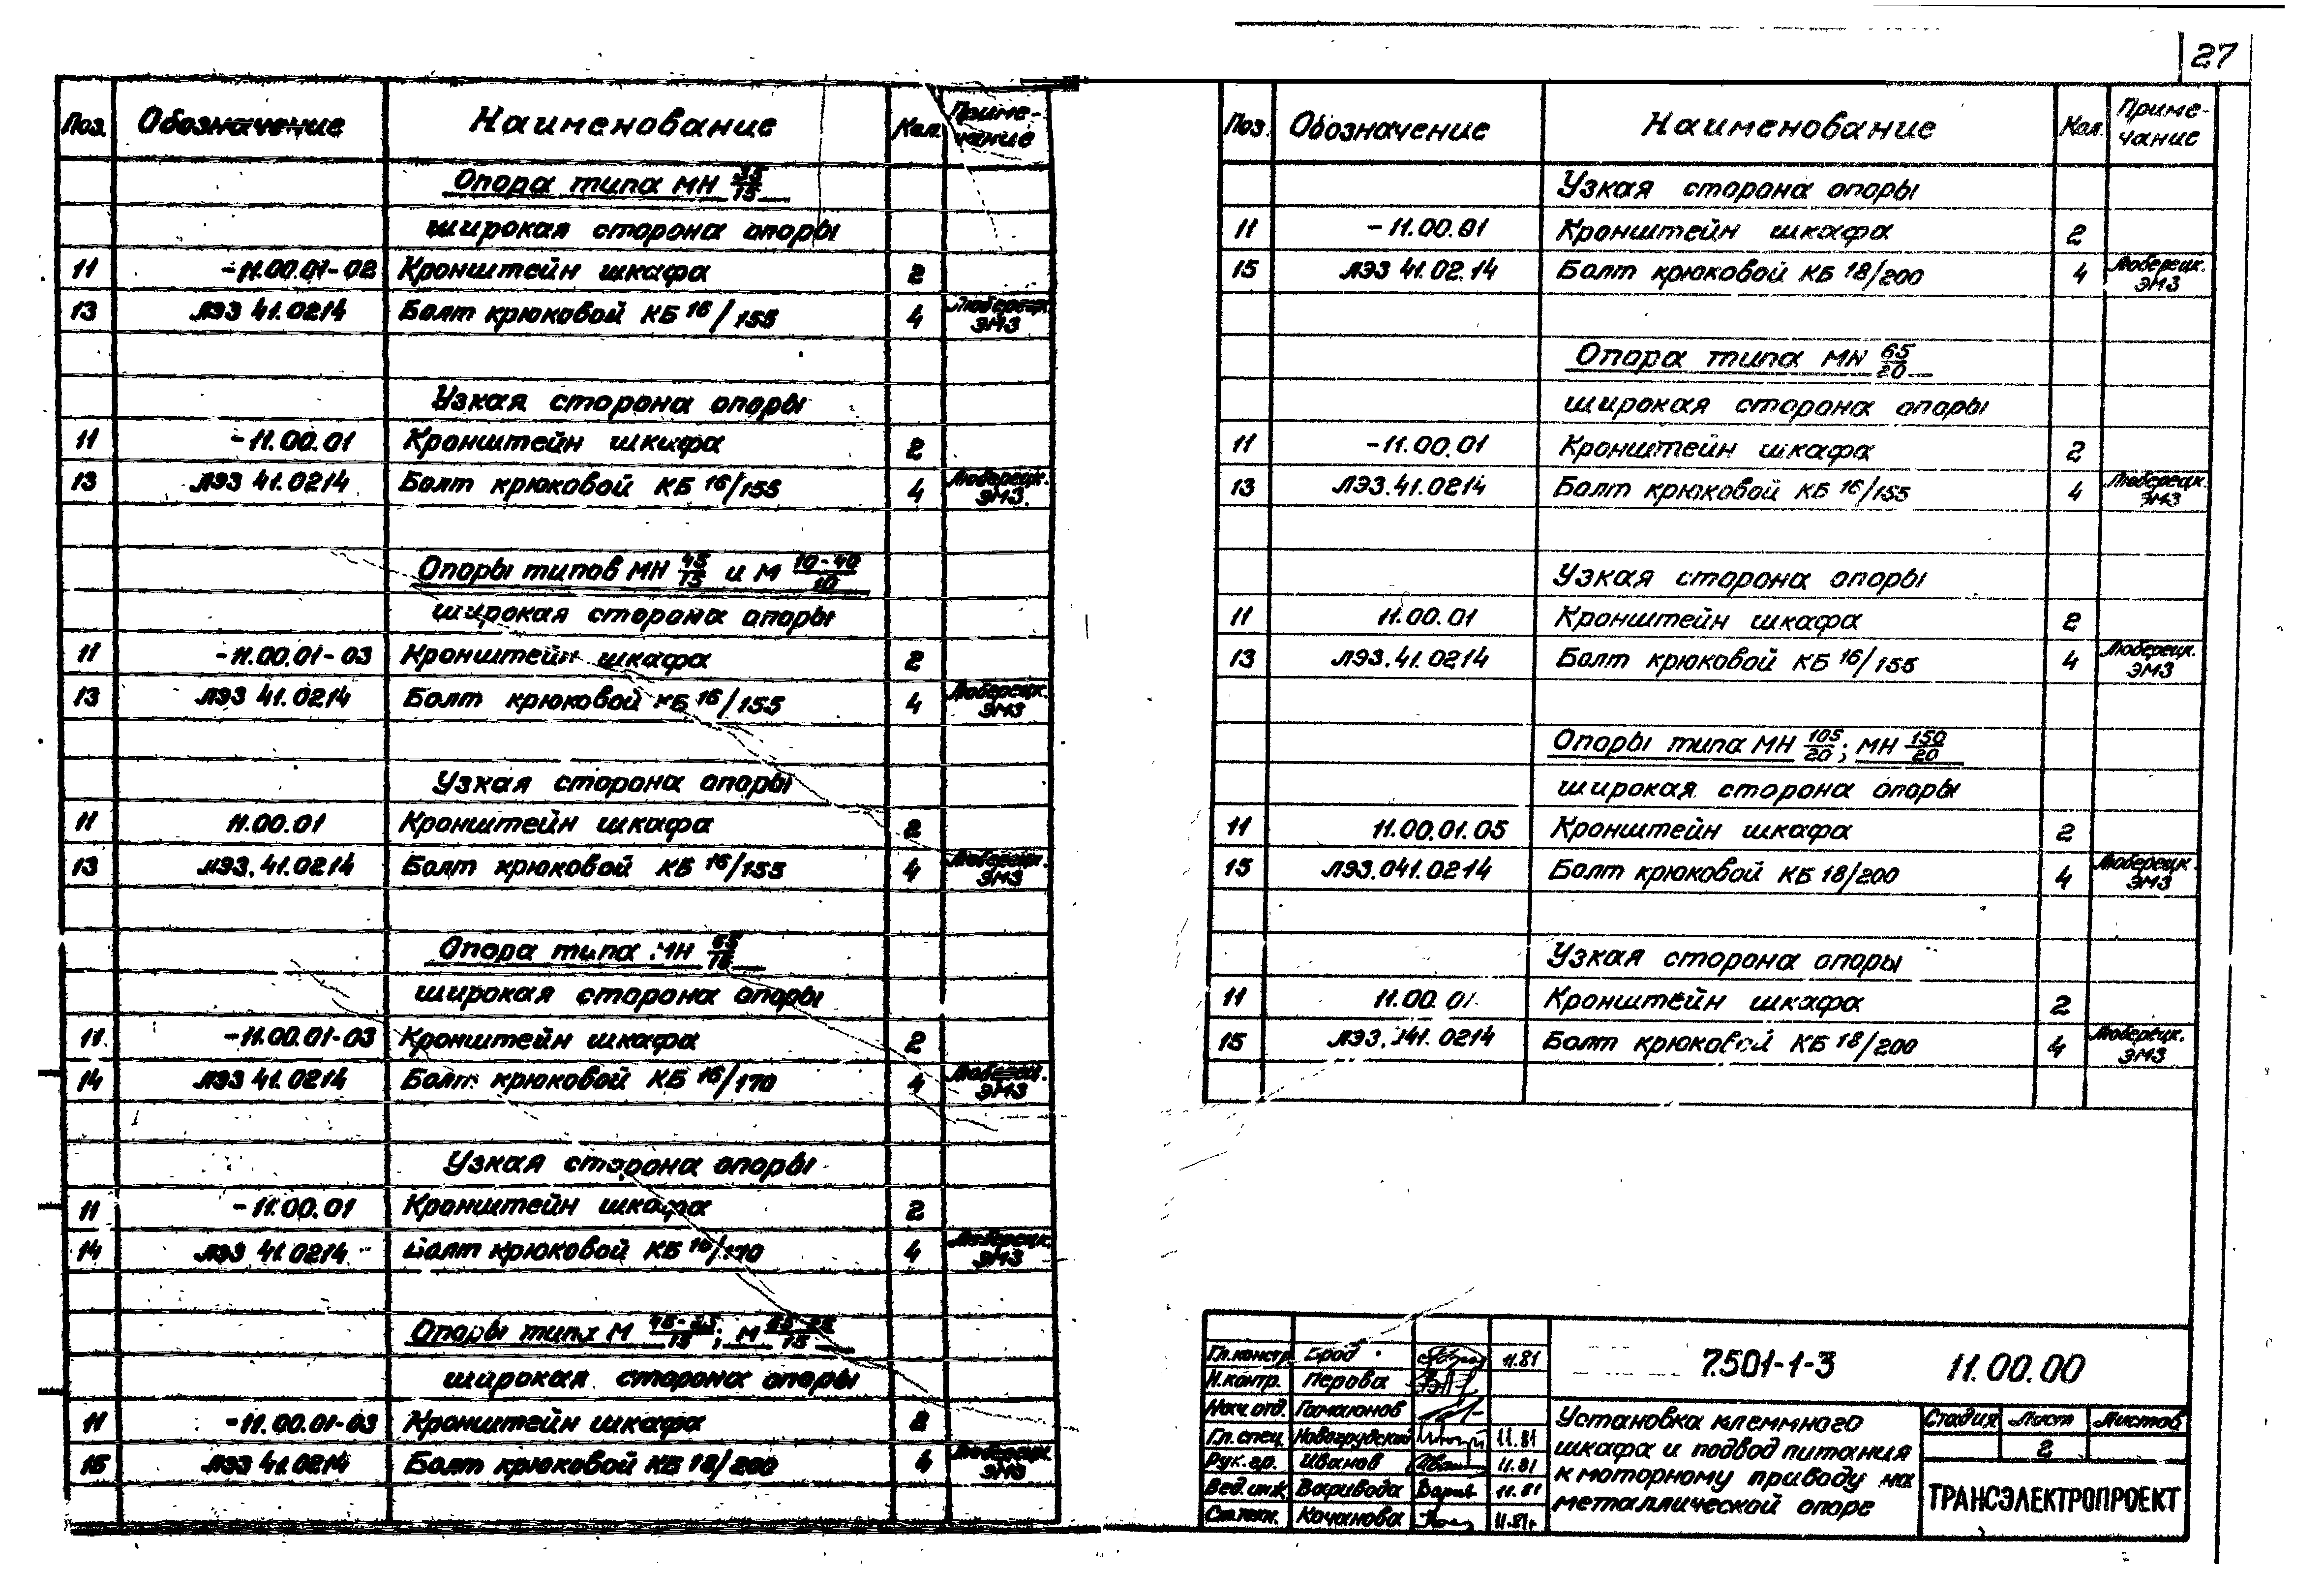 27
Поз. Обозначение Наименование Кол. Приме-
чание
Опора типа МН 35/15
широкая сторона опоры
11 -11.00.01-02 Кронштейн шкафа 2
13 ЛЭЗ 41.0214 Болт крюковой КБ 16/155 4 Люберецк.
ЭМЗ
Узкая сторона опоры
11 -11.00.01 Кронштейн шкафа 2
13 ЛЭЗ 41.0214 Болт крюковой КБ 16/155 4 Люберецк.
ЭМЗ.
Опоры типов МН 45/15 и М 10-40/10
широкая сторона опоры
11 -11.00.01-03 Кронштейн шкафа 2
13 ЛЭЗ 41.0214 Болт крюковой КБ 16/155 4 Люберецк.
ЭМЗ
Узкая сторона опоры
11 11.00.01 Кронштейн шкафа 2
13 ЛЭЗ.41.0214 Болт крюковой КБ 16/155 4 Люберецк.
ЭМЗ
Опора типа МН 65/15
широкая сторона опоры
11 -11.00.01-03 Кронштейн шкафа 2
14 ЛЭЗ 41.0214 Болт крюковой КБ 16/170 4
ЭМЗ
Узкая сторона опоры
11 -11.00.01 Кронштейн шкафа 2
14 ЛЭЗ 41.0214 Болт крюковой КБ 16/170 4 Люберецк.
ЭМЗ
Опоры типа М ; М
широкая сторона опоры
11 -11.00.01-03 Кронштейн шкафа 2
15 ЛЭЗ 41.0214 Болт крюковой КБ 18/200 4 Люберецк.
ЭМЗ
Поз. Обозначение Наименование Кол. Приме-
чание
Узкая сторона опоры
11 -11.00.01 Кронштейн шкафа 2
15 ЛЭЗ 41.02.14 Болт крюковой КБ 18/200 4 Люберецк.
ЭМЗ
Опора типа МН 65/20
широкая сторона опоры
11 -11.00.01 Кронштейн шкафа 2
13 ЛЭЗ.41.0214 Болт крюковой КБ 16/155 4 Люберецк.
ЭМЗ
Узкая сторона опоры
11 11.00.01 Кронштейн шкафа 2
13 ЛЭЗ.41.0214 Болт крюковой КБ 16/155 4 Люберецк.
ЭМЗ
Опоры типа МН 105/20; МН 150/20
широкая сторона опоры
11 11.00.01.05 Кронштейн шкафа 2
15 ЛЭЗ.041.0214 Болт крюковой КБ 18/200 4 Люберецк.
ЭМЗ
Узкая сторона опоры
11 11.00.01 Кронштейн шкафа 2
15 ЛЭЗ. 0214 Болт крюковой КБ 18/200 4 Люберецк.
ЭМЗ
Гл.констр. Брод 11.81
Н.контр. Перова
Нач.отд. Гамаюнов
Гл.спец. Новогрудской 11.81
Рук.гр. Иванов 11.81
Вед.инж. Варивода 11.81
Ст.техн. Кочанова 11.81г
7.501-1-3 11.00.00
Установка клеммного
шкафа и подвод питания
к моторному приводу на
металлической опоре
Стадия Лист Листов
2
ТРАНСЭЛЕКТРОПРОЕКТ